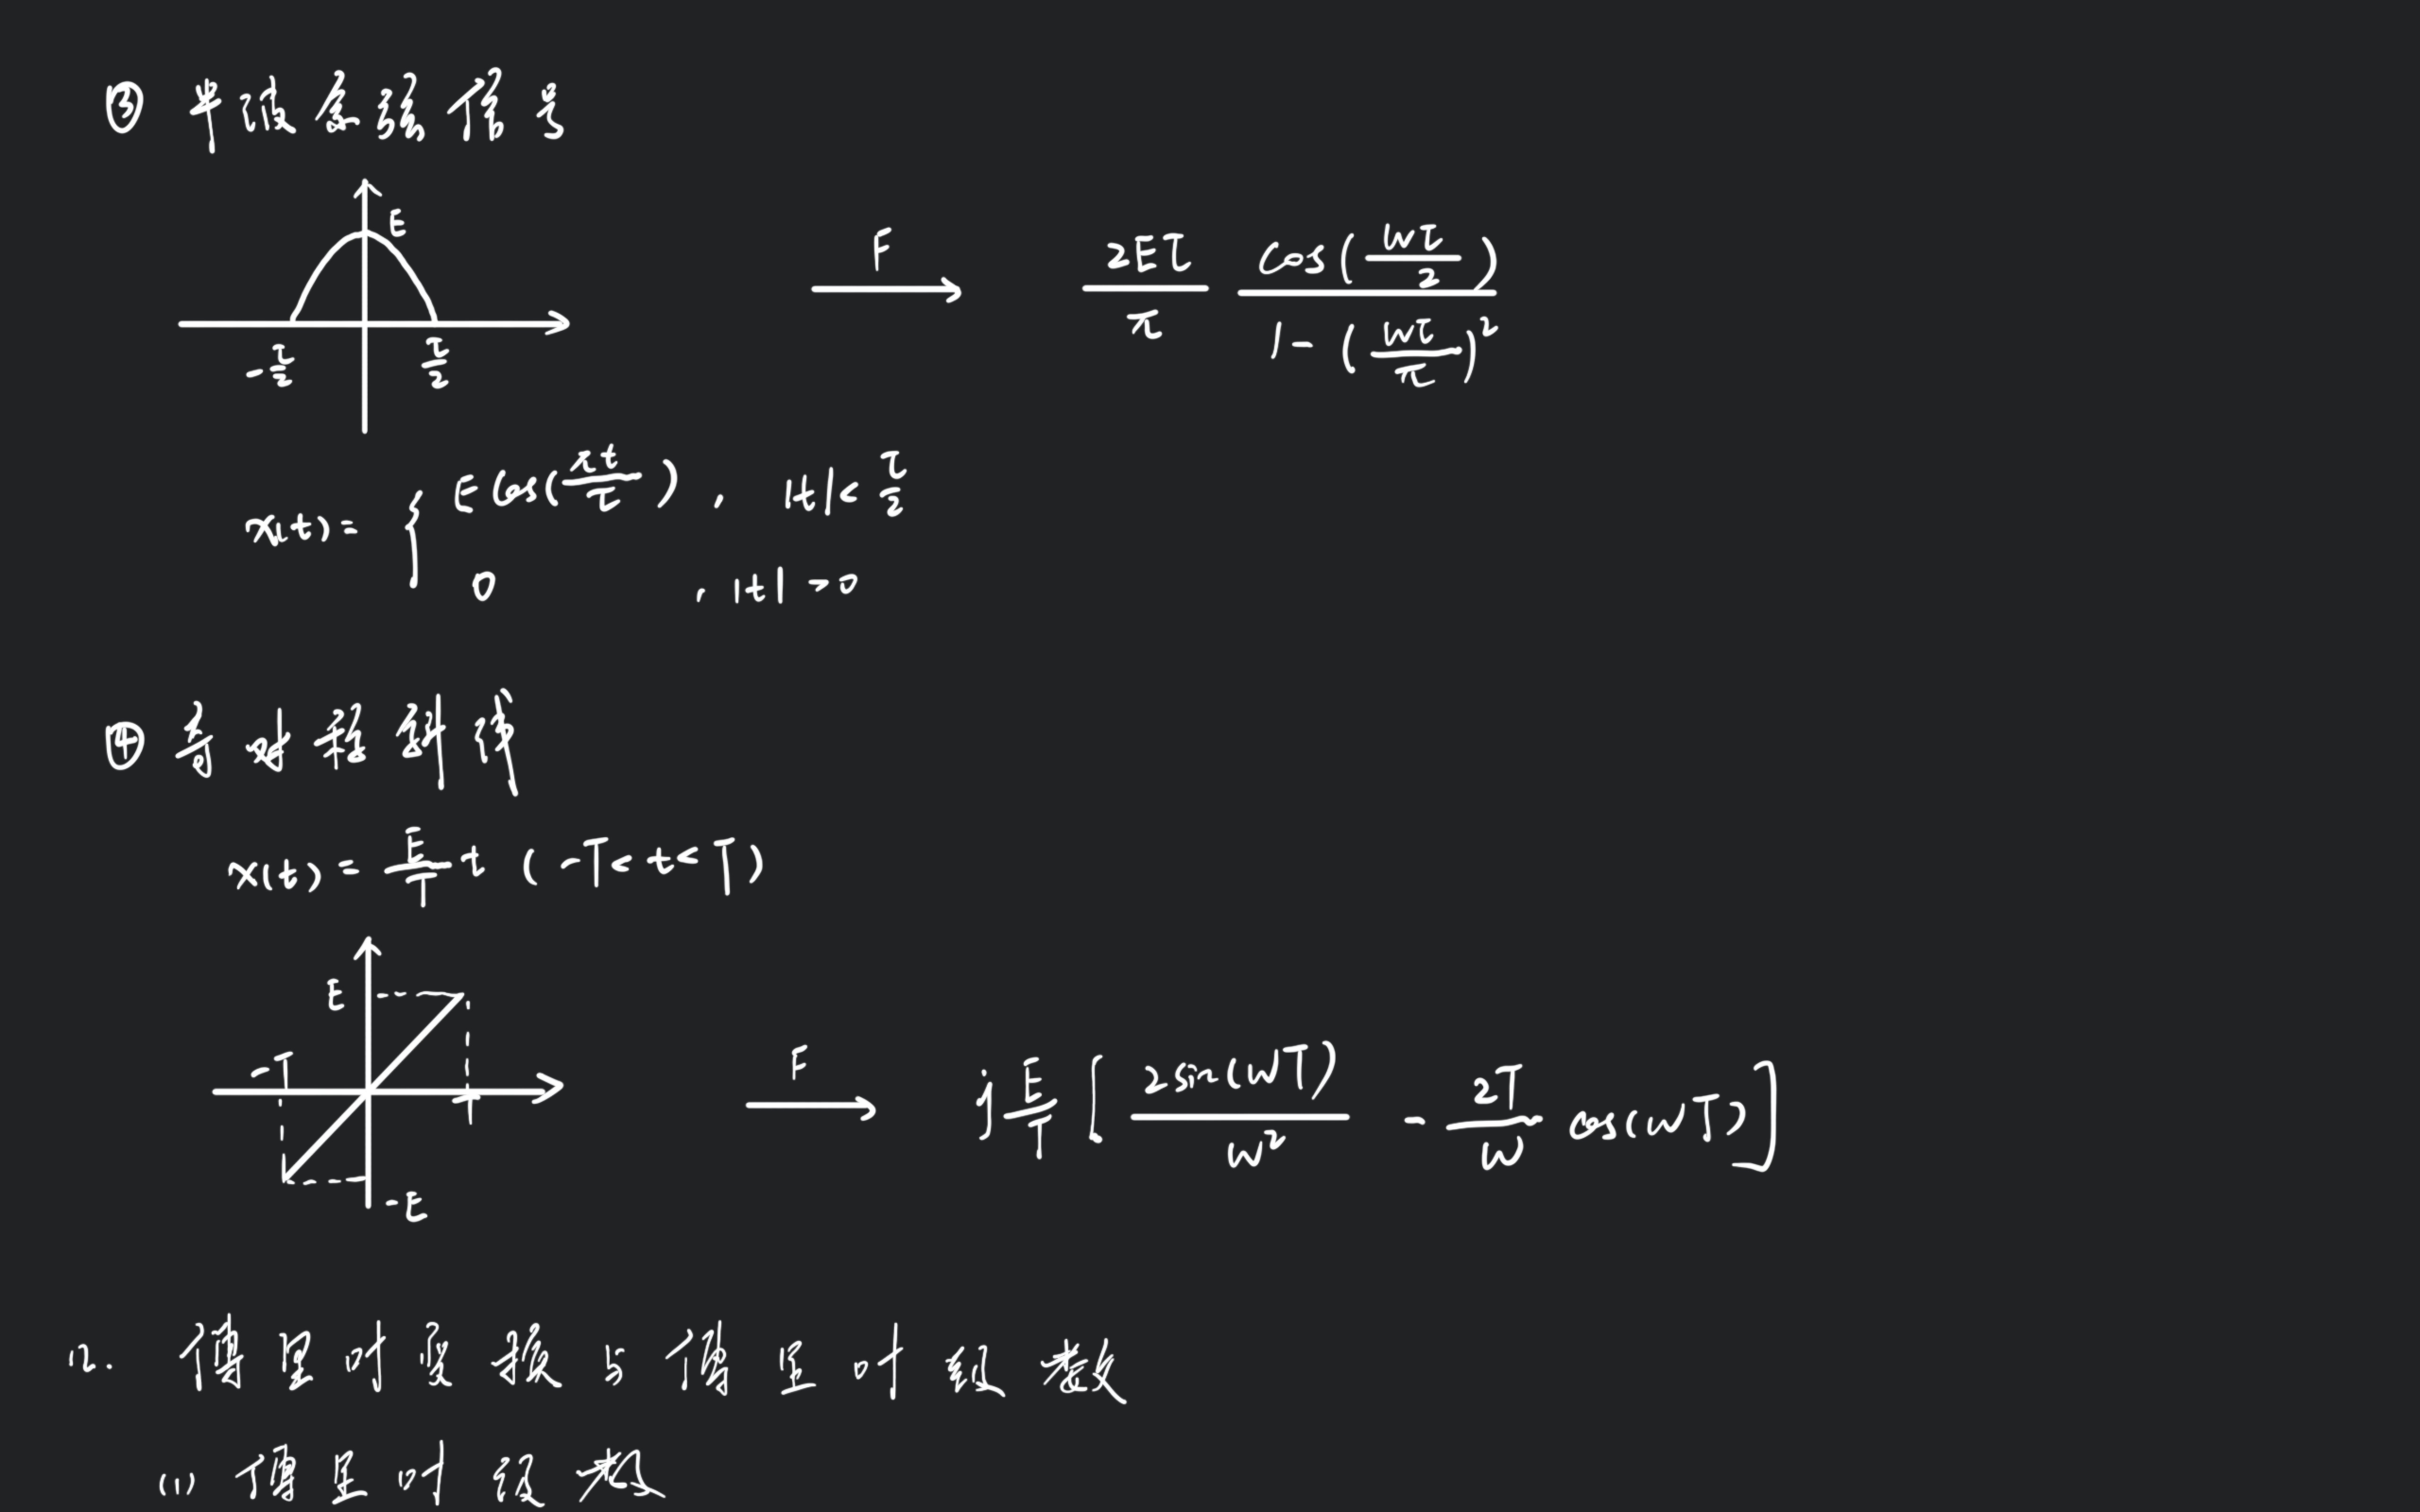 ③ 半波余弦信号
E
-τ/2 τ/2
F
2Eτ/π cos(wτ/2)/(1-(wτ/π)²)
x(t)= { E cos(πt/τ), |t|<τ/2
0 , |t|>0
④ 奇对称斜线
x(t)=E/T t (-T<t<T)
E
-T T
-E
F
j E/T [2sin(wT)/w² - 2T/w cos(wT)]
12. 傅里叶变换与傅里叶级数
(1) 傅里叶级数